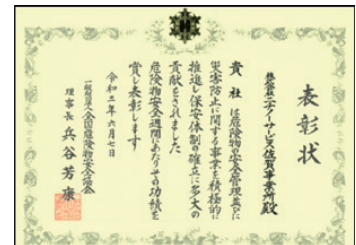 表彰状
株式会社エナーサービス佐賀事業所殿
貴社は危険物の安全管理並びに
災害防止に関する事業を積極的に
推進し保安体制の確立に多大の
貢献をされました
危険物安全週間にあたりその功績を
賞し表彰します
令和三年六月七日
一般財団法人全国危険物安全協会
理事長 兵谷芳康